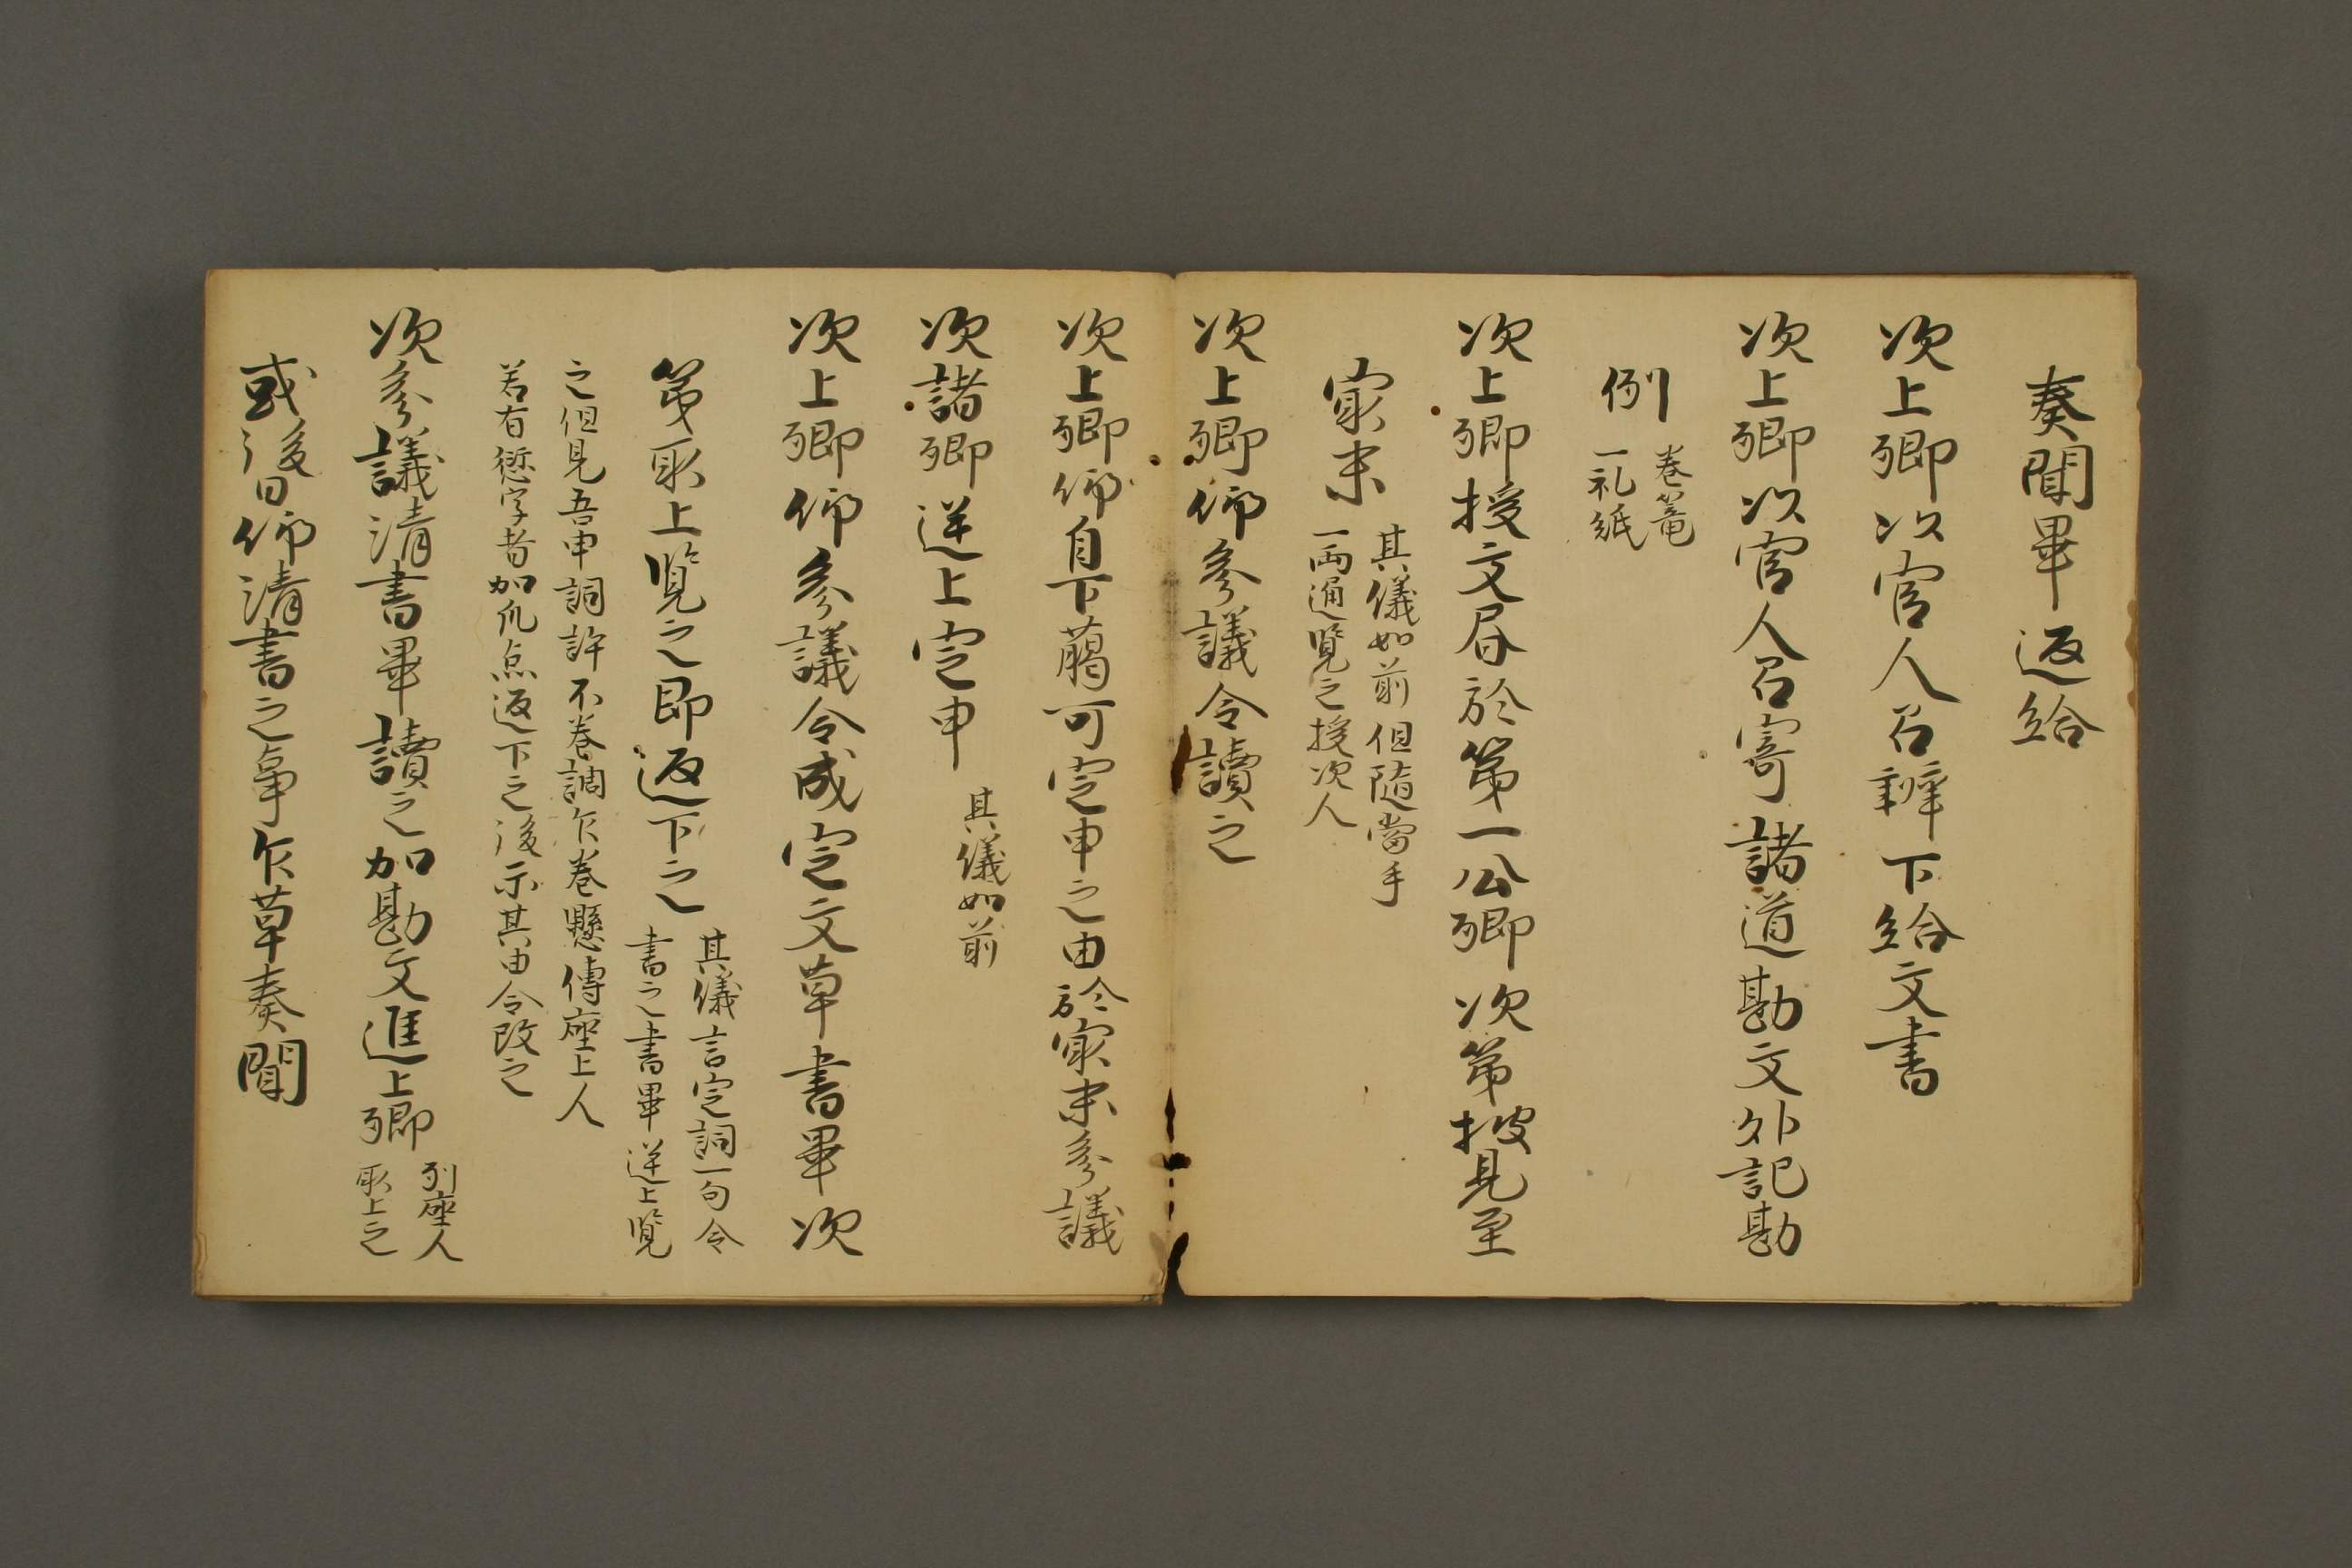 奏聞畢返給
次上卿以官人召辨下給文書
次上卿以官人召寄諸道勘文外記勘
例
巻篭
一礼紙
次上卿授文昼於第一公卿次第披見至
最末
其儀如前但随當手
一両通覧之授次人
次上卿仰参議令讀之
次上卿仰自下﨟可定申之由於最末参議
次諸卿逆上定申
其儀如前
次上卿仰参議令成定文草書畢次
第取上覧之即返下之
其儀言定詞一句令
書之書畢逆上覧
之但見吾申詞許不巻調乍巻懸傳座上人
若有愆字者加爪点返下之後示其由令改之
次参議清書畢讀之加勘文進上卿
列座人
取上之
或後日仰清書之事乍草奏聞